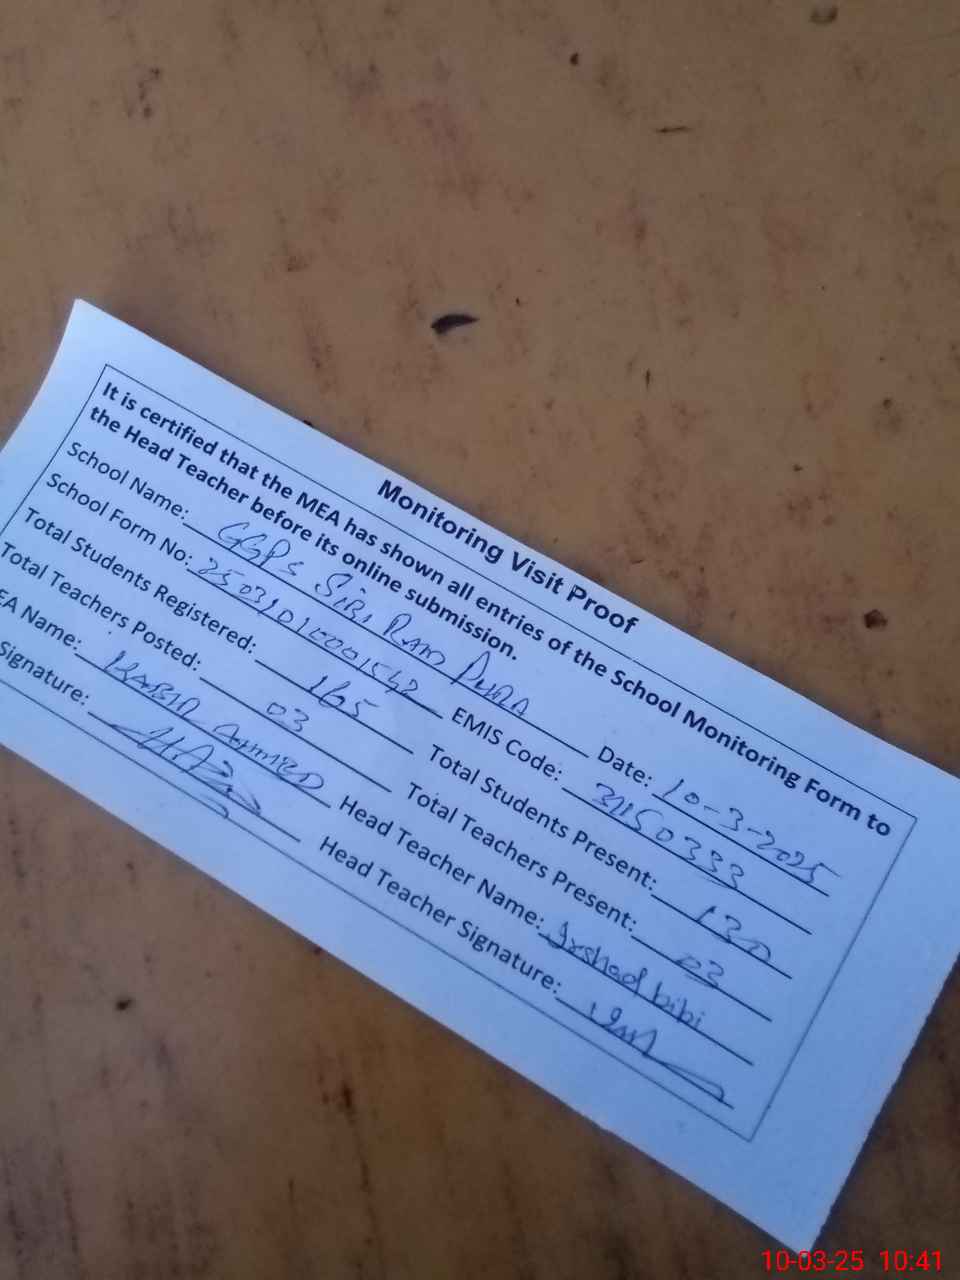 Monitoring Visit Proof
It is certified that the MEA has shown all entries of the School Monitoring Form to
the Head Teacher before its online submission.
School Name: GGPS Sibi Ram Pura Date: 10-3-2025
School Form No: 25031010001542 EMIS Code: 31150333
Total Students Registered: 165 Total Students Present: 130
Total Teachers Posted: 03 Total Teachers Present: 03
EA Name: KABIR AHMED Head Teacher Name: Irshad bibi
Signature: Head Teacher Signature:
10-03-25 10:41